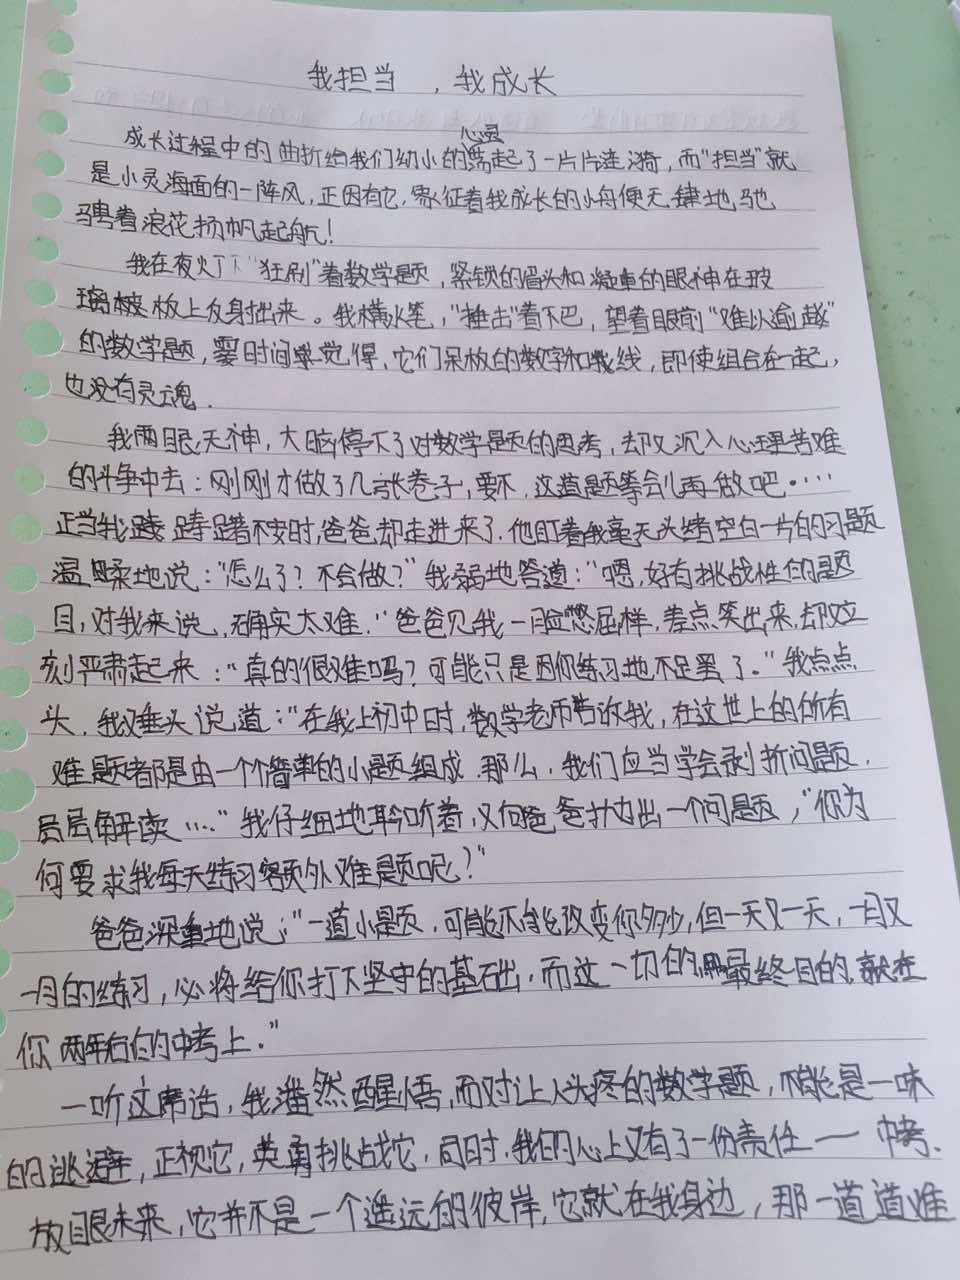 我担当，我成长
心灵
成长过程中的曲折给我们幼小的荡起了一片片涟漪，而"担当"就
是小灵海面的一阵风，正因有它，象征着我成长的小舟便无肆地驰
骋着浪花扬帆起航！
我在夜灯下"狂刷"着数学题，紧锁的眉头和凝重的眼神在玻
璃板上反射出来。我横水笔，"捶击"着下巴，望着眼前"难以逾越"
的数学题，霎时间觉得，它们呆板的数字和线，即使组合在一起，
也没有灵魂．
我两眼无神，大脑停下了对数学题的思考，却又沉入心理苦难
的斗争中去：刚刚才做了几张卷子，要不，这道题等会儿再做吧……
正当我踌躇不安时，爸爸却走进来了．他盯着我毫无头绪空白一片的习题
温柔地说："怎么了？不会做？"我弱弱地答道："嗯，好有挑战性的题
目，对我来说，确实太难．"爸爸见我一脸憋屈样，差点笑出来，却又立
刻严肃起来："真的很难吗？可能只是因你练习地不足罢了．"我点点
头，我又垂头说道："在我上初中时，数学老师告诉我，在这世上的所有
难题都是由一个个简单的小题组成．那么，我们应当学会剥折问题，
层层解读……"我仔细地聆听着，又向爸爸抛出一个问题，"你为
何要求我每天练习额外难题呢？"
爸爸深重地说："一道小题，可能不能改变你多少，但一天又一天，一月又
一月的练习，必将给你打下坚守的基础，而这一切的最终目的，就在
你两年后的中考上．"
一听这席话，我潘然醒悟，而对让人头疼的数学题，不能是一味
的逃避，正视它，英勇挑战它，同时，我的心上又有了一份责任——中考．
放眼未来，它并不是一个遥远的彼岸，它就在我身边，那一道道难